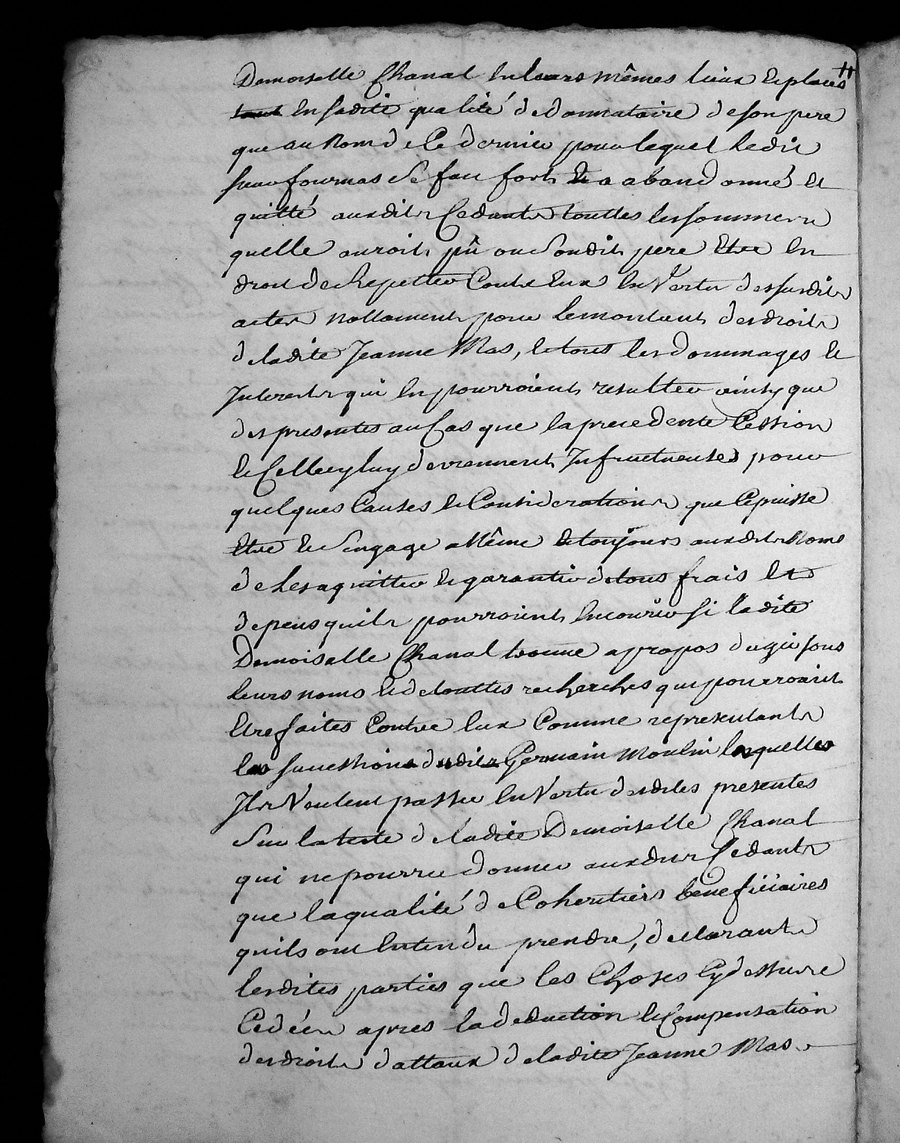 11
Demoiselle Chanal en leurs mêmes lieux et places
tant en sadite qualité de donnataire de son pere
que au nom de ce dernier pour lequel ledit
sieur fournas se fait fort et a abandonné et
quitté auxdits Cedants touttes les sommes
quelle auroit pû ou sondit pere Etre en
droit de Repetter Contre Eux En Vertu des susdits
actes nottament pour le montant des droits
de ladite Jeanne Mas, et tous les dommages et
Interests qui en pourroient resulter ainsy que
des presentes au Cas que la precedente Cession
et Celle cy luy devrennent Infructueuses pour
quelques Causes et Considerations que ce puisse
Etre et sengage a Même et toujours auxdits Noms
de les aquitter et garantir de tous frais et
depens quils pourroient Encourir si ladite
Demoiselle Chanal trouve apropos dagir sous
leurs noms et de touttes recherches qui pourroient
Etre faites Contre Eux Comme representants
la succession dudit Germain Moulin lesquelles
Ils Veulent passer En Vertu desdites presentes
sur la teste de ladite Demoiselle Chanal
qui ne pourra donner auxdits Cedants
que la qualité de Coheritiers beneficiaires
quils ont Entendu prendre, declarants
lesdites parties que les Choses Cy dessus
Cedées apres la deduction et Compensation
des droits dattaux de ladite Jeanne Mas